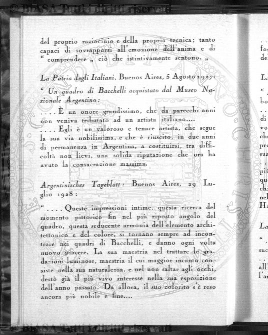 del proprio raziocinio e della propria tecnica: tanto
capaci di sovrapporsi all'emozione dell'anima e di
compendere „ ciò che istintivamente sentono. „
La Patria degli Italiani. Buenos Aires, 5 Agosto 1927:
“ Un quadro di Bacchelli acquistato dal Museo Na-
zionale Argentino:
.... È un onore grandissimo, che da parecchi anni
non veniva tributato ad un artista italiano....
.... Egli è un valoroso e tenace artista, che segue
la sua via nobilissima, e che è riuscito, in due anni
di permanenza in Argentina, a costituirsi, tra diffi-
coltà non lievi, una solida riputazione che ora ha
avuto la consacrazione massima.
Argentinisches Tageblatt: Buenos Aires, 29 Lu-
glio 1928:
.... Queste impressioni intime, questa ricerca del
momento pittorico fin nel più riposto angolo del
quadro, questa seducente armonia dell'elemento archit-
tettonico e del colore, si tornano sempre ad incon-
trare nei quadri di Bacchelli, e danno ogni volta
nuovo piacere. La sua maestria nel trattare le gra-
dazioni luminose, maestria il cui maggior incanto con-
siste nella sua naturalezza, e nel suo salto agli occhi,
destò già il più vivo interesse nella sua esposizione
dell'anno passato. Da allora, il suo colorito s'è reso
ancora più nobile e fine....